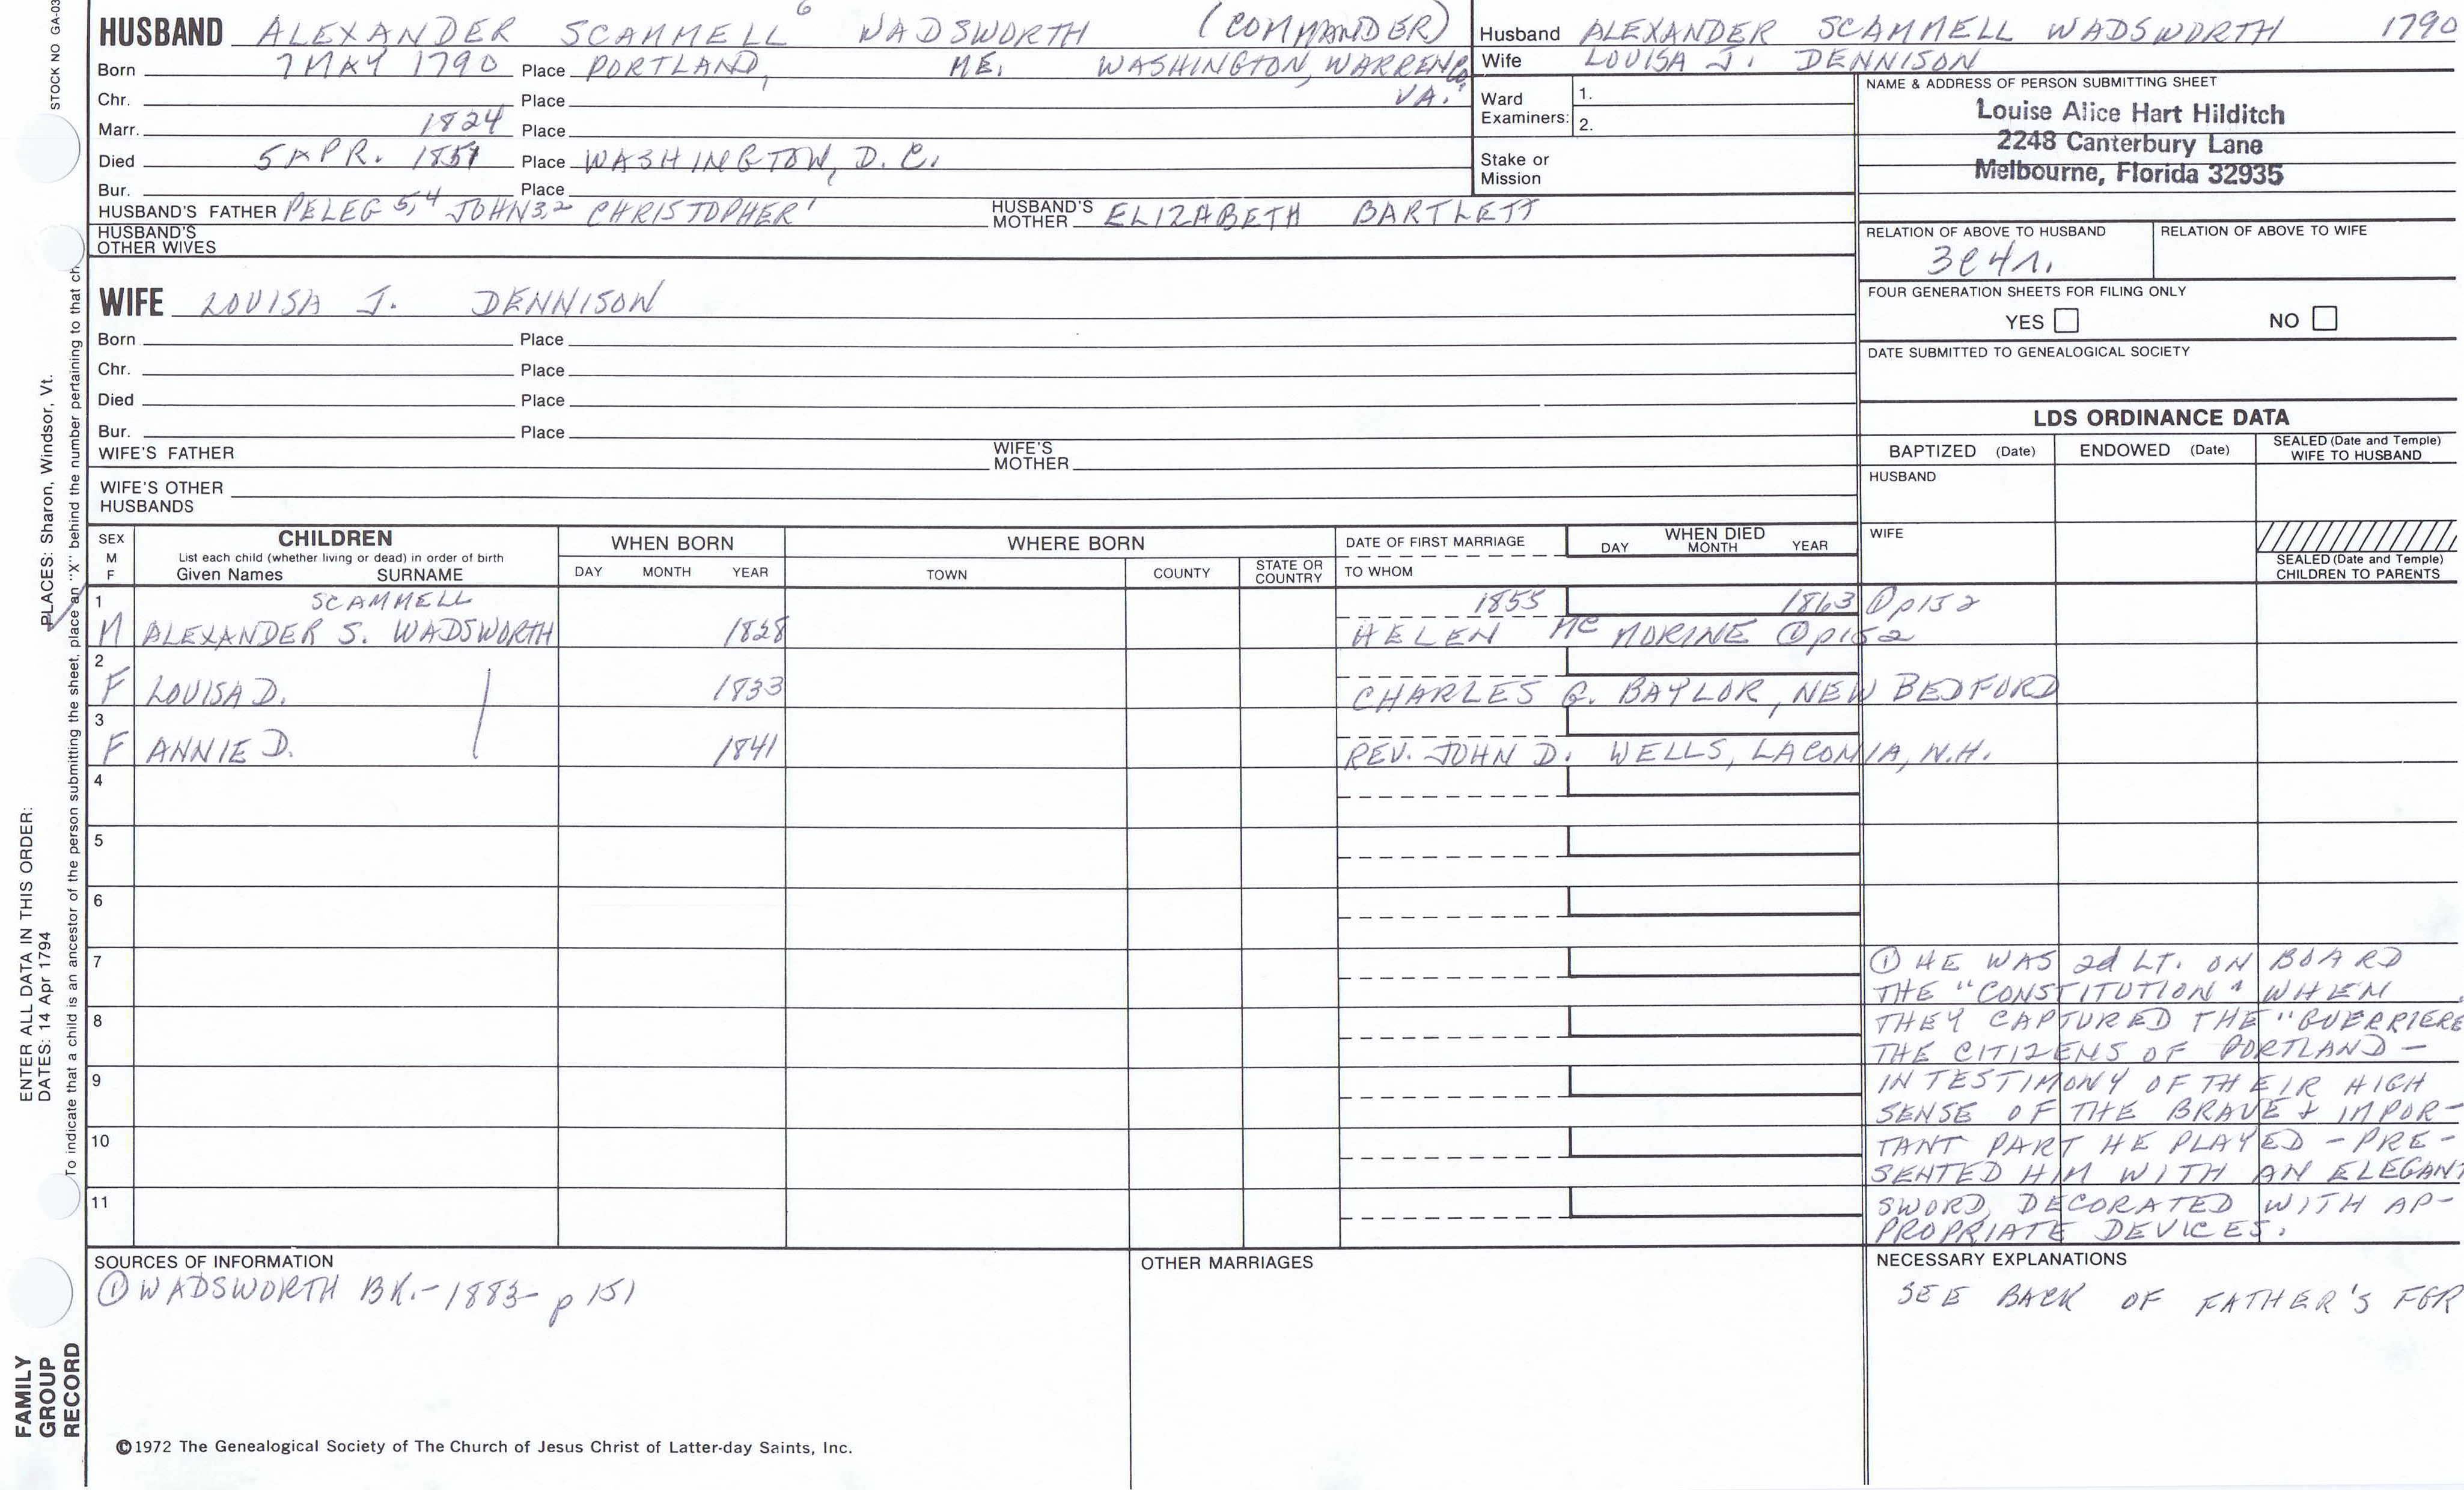 STOCK NO GA-03
HUSBAND ALEXANDER SCAMMELL 6 WADSWORTH (COMMANDER)
Born 7 MAY 1790 Place PORTLAND, ME. WASHINGTON, WARREN CO.
VA.
Chr. Place
Marr. 1824 Place
Died 5 APR. 1851 Place WASHINGTON, D.C.
Bur. Place
HUSBAND'S FATHER PELEG 5,4 JOHN 3,2 CHRISTOPHER 1 HUSBAND'S MOTHER ELIZABETH BARTLETT
HUSBAND'S
OTHER WIVES
Husband ALEXANDER SCAMMELL WADSWORTH 1790
Wife LOUISA J. DENNISON
Ward
Examiners: 1.
2.
Stake or
Mission
NAME & ADDRESS OF PERSON SUBMITTING SHEET
Louise Alice Hart Hilditch
2248 Canterbury Lane
Melbourne, Florida 32935
RELATION OF ABOVE TO HUSBAND RELATION OF ABOVE TO WIFE
3C4R.
FOUR GENERATION SHEETS FOR FILING ONLY
YES NO
DATE SUBMITTED TO GENEALOGICAL SOCIETY
WIFE LOUISA J. DENNISON
Born Place
Chr. Place
Died Place
Bur. Place
WIFE'S FATHER WIFE'S MOTHER
WIFE'S OTHER
HUSBANDS
LDS ORDINANCE DATA
BAPTIZED (Date) ENDOWED (Date) SEALED (Date and Temple) WIFE TO HUSBAND
HUSBAND
WIFE
SEALED (Date and Temple)
CHILDREN TO PARENTS
SEX M F CHILDREN WHEN BORN WHERE BORN DATE OF FIRST MARRIAGE WHEN DIED
List each child (whether living or dead) in order of birth
Given Names SURNAME DAY MONTH YEAR TOWN COUNTY STATE OR COUNTRY TO WHOM DAY MONTH YEAR
1 SCAMMELL 1855 1863 ① p152
M ALEXANDER S. WADSWORTH 1828 HELEN Mc MORINE ① p152
2
F LOUISA D. 1833 CHARLES G. BAYLOR, NEW BEDFORD
3
F ANNIE D. 1841 REV. JOHN D. WELLS, LACONIA, N.H.
4
5
6
7
8
9
10
11
① HE WAS 2d LT. ON BOARD
THE "CONSTITUTION" WHEN
THEY CAPTURED THE "GUERRIERE
THE CITIZENS OF PORTLAND -
IN TESTIMONY OF THEIR HIGH
SENSE OF THE BRAVE & IMPOR-
TANT PART HE PLAYED - PRE-
SENTED HIM WITH AN ELEGANT
SWORD, DECORATED WITH AP-
PROPRIATE DEVICES.
SOURCES OF INFORMATION
① WADSWORTH BK.-1883- p 151
OTHER MARRIAGES
NECESSARY EXPLANATIONS
SEE BACK OF FATHER'S FGR
©1972 The Genealogical Society of The Church of Jesus Christ of Latter-day Saints, Inc.
FAMILY
GROUP
RECORD
ENTER ALL DATA IN THIS ORDER:
DATES: 14 Apr 1794 PLACES: Sharon, Windsor, Vt.
To indicate that a child is an ancestor of the person submitting the sheet, place an "X" behind the number pertaining to that ch